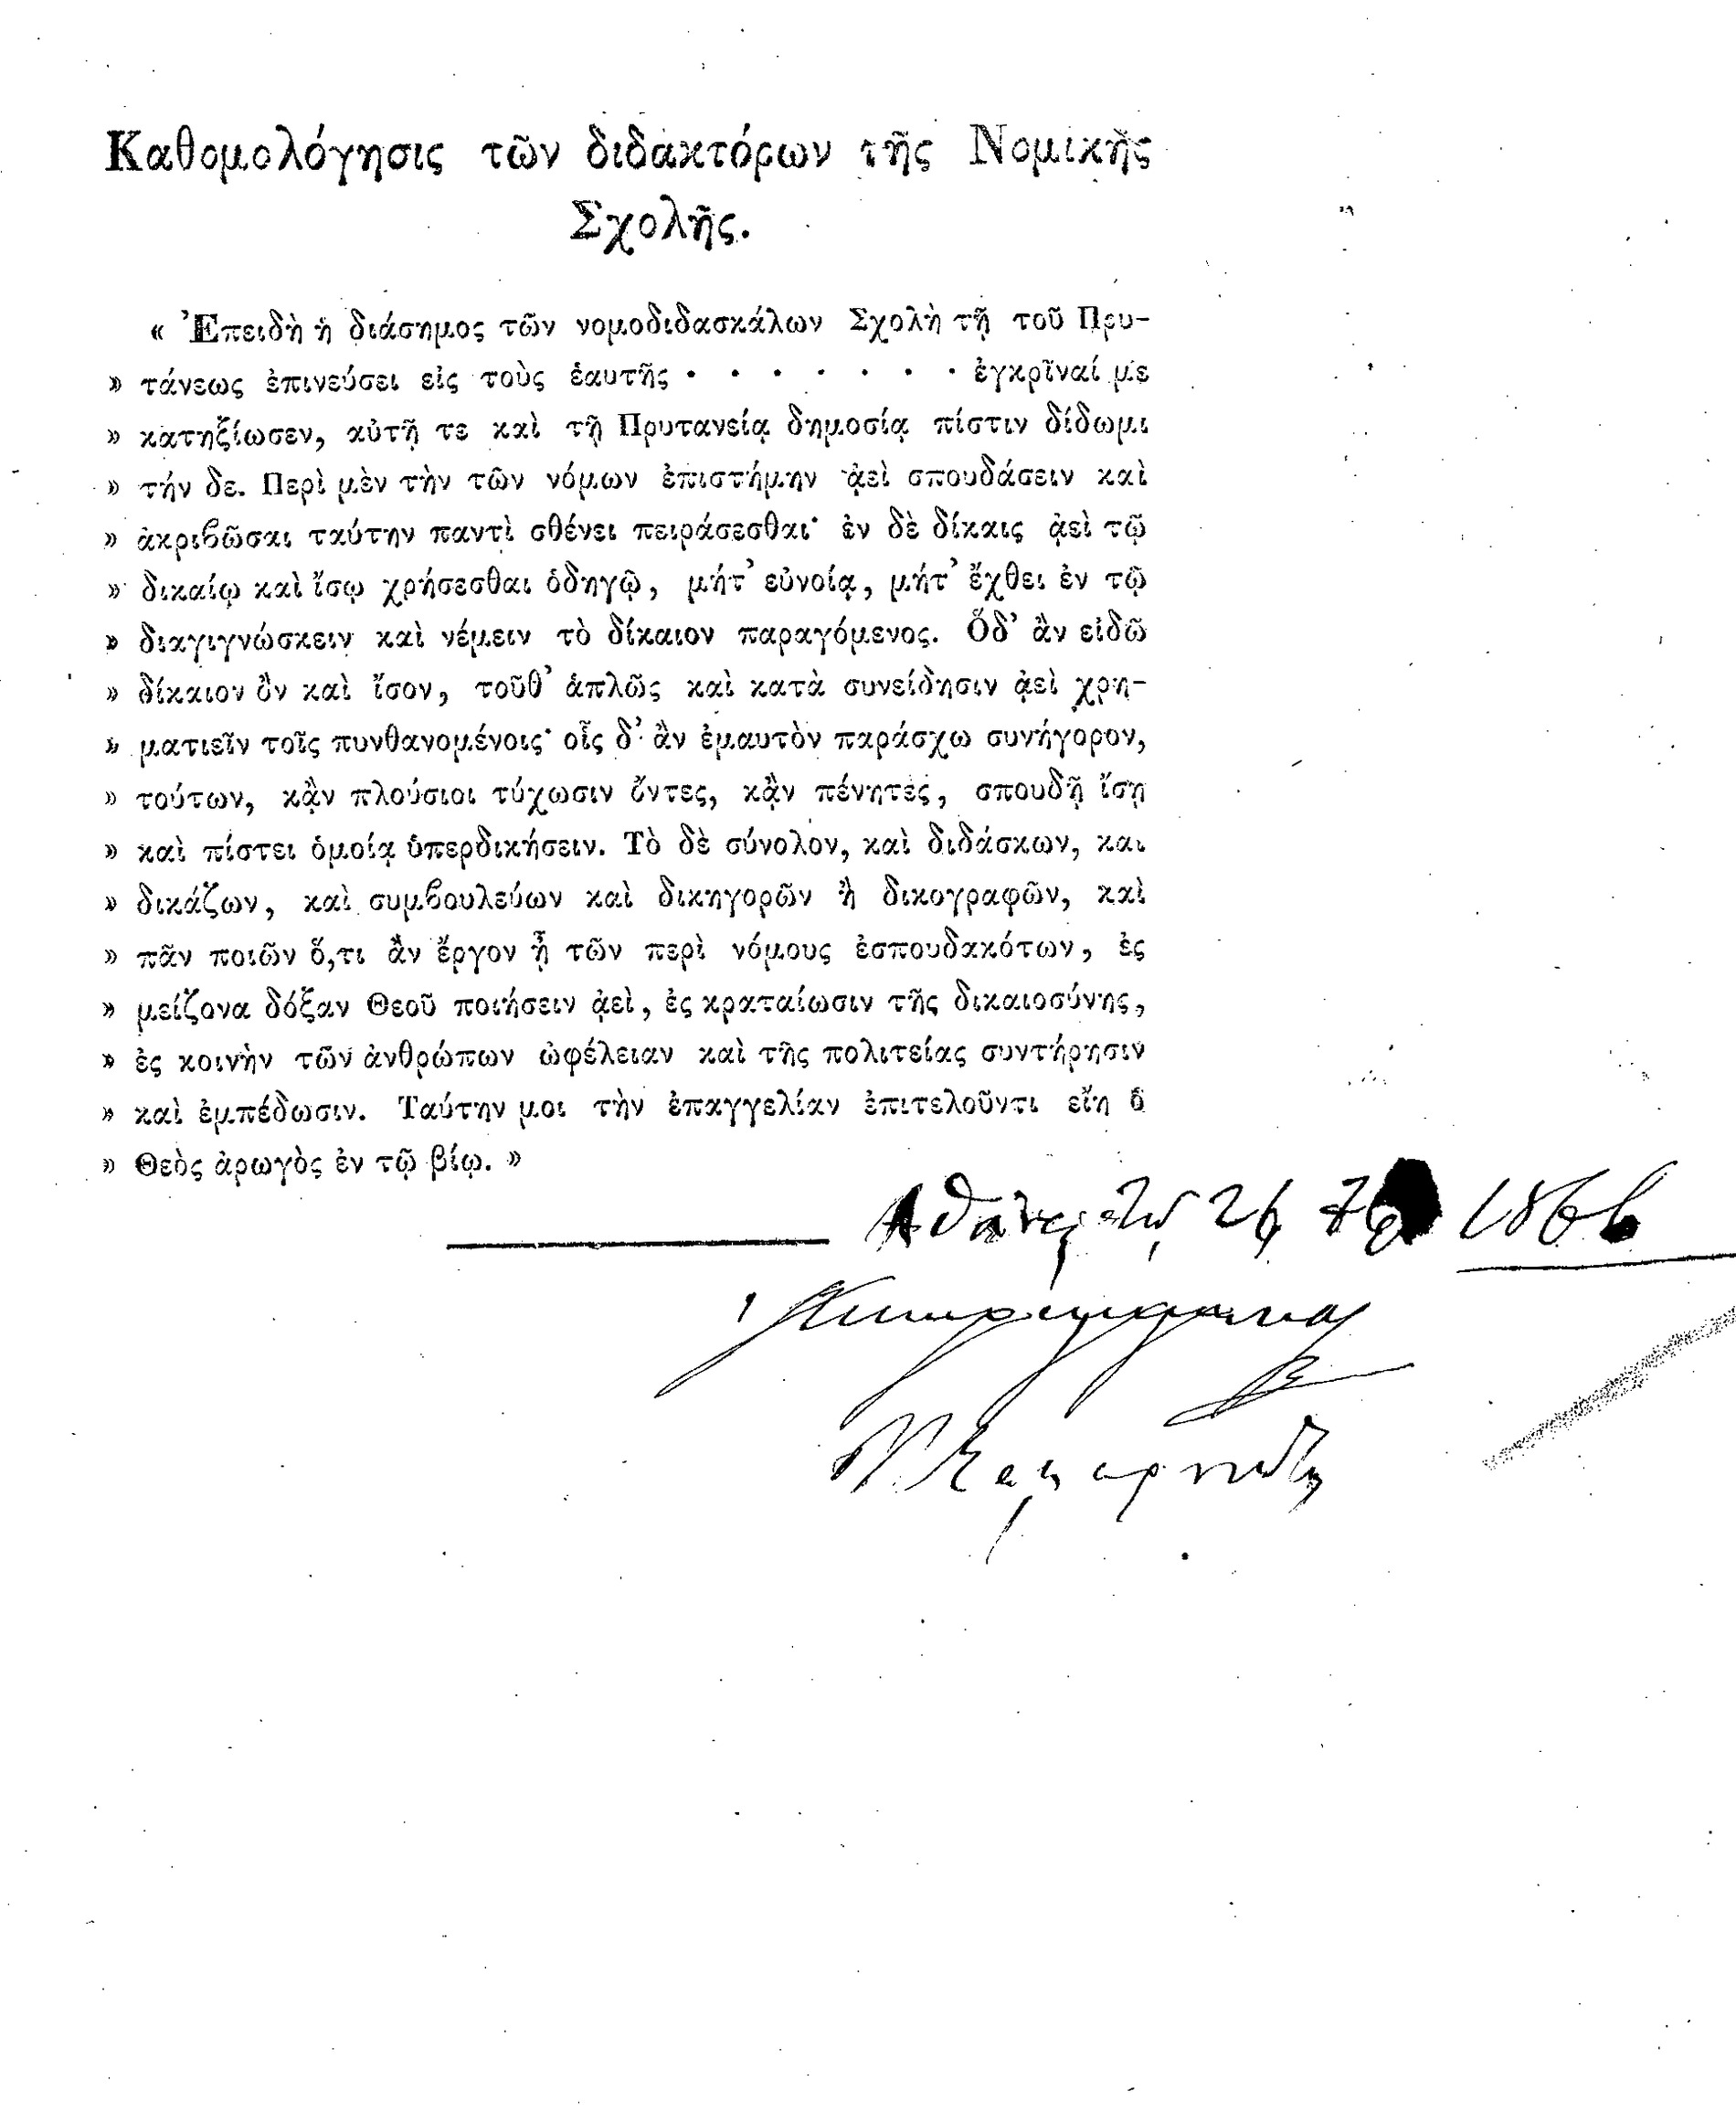 Καθομολόγησις τῶν διδακτόρων τῆς Νομικῆς
Σχολῆς.
« Ἐπειδὴ ἡ διάσημος τῶν νομοδιδασκάλων Σχολὴ τῇ τοῦ Πρυ-
» τάνεως ἐπινεύσει εἰς τοὺς ἑαυτῆς . . . . . . . ἐγκρῖναί με
» κατηξίωσεν, αὐτῇ τε καὶ τῇ Πρυτανείᾳ δημοσίᾳ πίστιν δίδωμι
» τήν δε. Περὶ μὲν τὴν τῶν νόμων ἐπιστήμην ᾀεὶ σπουδάσειν καὶ
» ἀκριβῶσαι ταύτην παντὶ σθένει πειράσεσθαι· ἐν δὲ δίκαις ᾀεὶ τῷ
» δικαίῳ καὶ ἴσῳ χρήσεσθαι ὁδηγῷ, μήτ' εὐνοίᾳ, μήτ' ἔχθει ἐν τῷ
» διαγιγνώσκειν καὶ νέμειν τὸ δίκαιον παραγόμενος. Ὅδ' ἂν εἰδῶ
» δίκαιον ὂν καὶ ἴσον, τοῦθ' ἁπλῶς καὶ κατὰ συνείδησιν ᾀεὶ χρη-
» ματιεῖν τοῖς πυνθανομένοις· οἷς δ' ἂν ἐμαυτὸν παράσχω συνήγορον,
» τούτων, κᾂν πλούσιοι τύχωσιν ὄντες, κᾂν πένητες, σπουδῇ ἴσῃ
» καὶ πίστει ὁμοίᾳ ὑπερδικήσειν. Τὸ δὲ σύνολον, καὶ διδάσκων, και
» δικάζων, καὶ συμβουλεύων καὶ δικηγορῶν ἢ δικογραφῶν, καὶ
» πᾶν ποιῶν ὅ,τι ἂν ἔργον ᾖ τῶν περὶ νόμους ἐσπουδακότων, ἐς
» μείζονα δόξαν Θεοῦ ποιήσειν ᾀεὶ, ἐς κραταίωσιν τῆς δικαιοσύνης,
» ἐς κοινὴν τῶν ἀνθρώπων ὠφέλειαν καὶ τῆς πολιτείας συντήρησιν
» καὶ ἐμπέδωσιν. Ταύτην μοι τὴν ἐπαγγελίαν ἐπιτελοῦντι εἴη ὁ
» Θεὸς ἀρωγὸς ἐν τῷ βίῳ. »